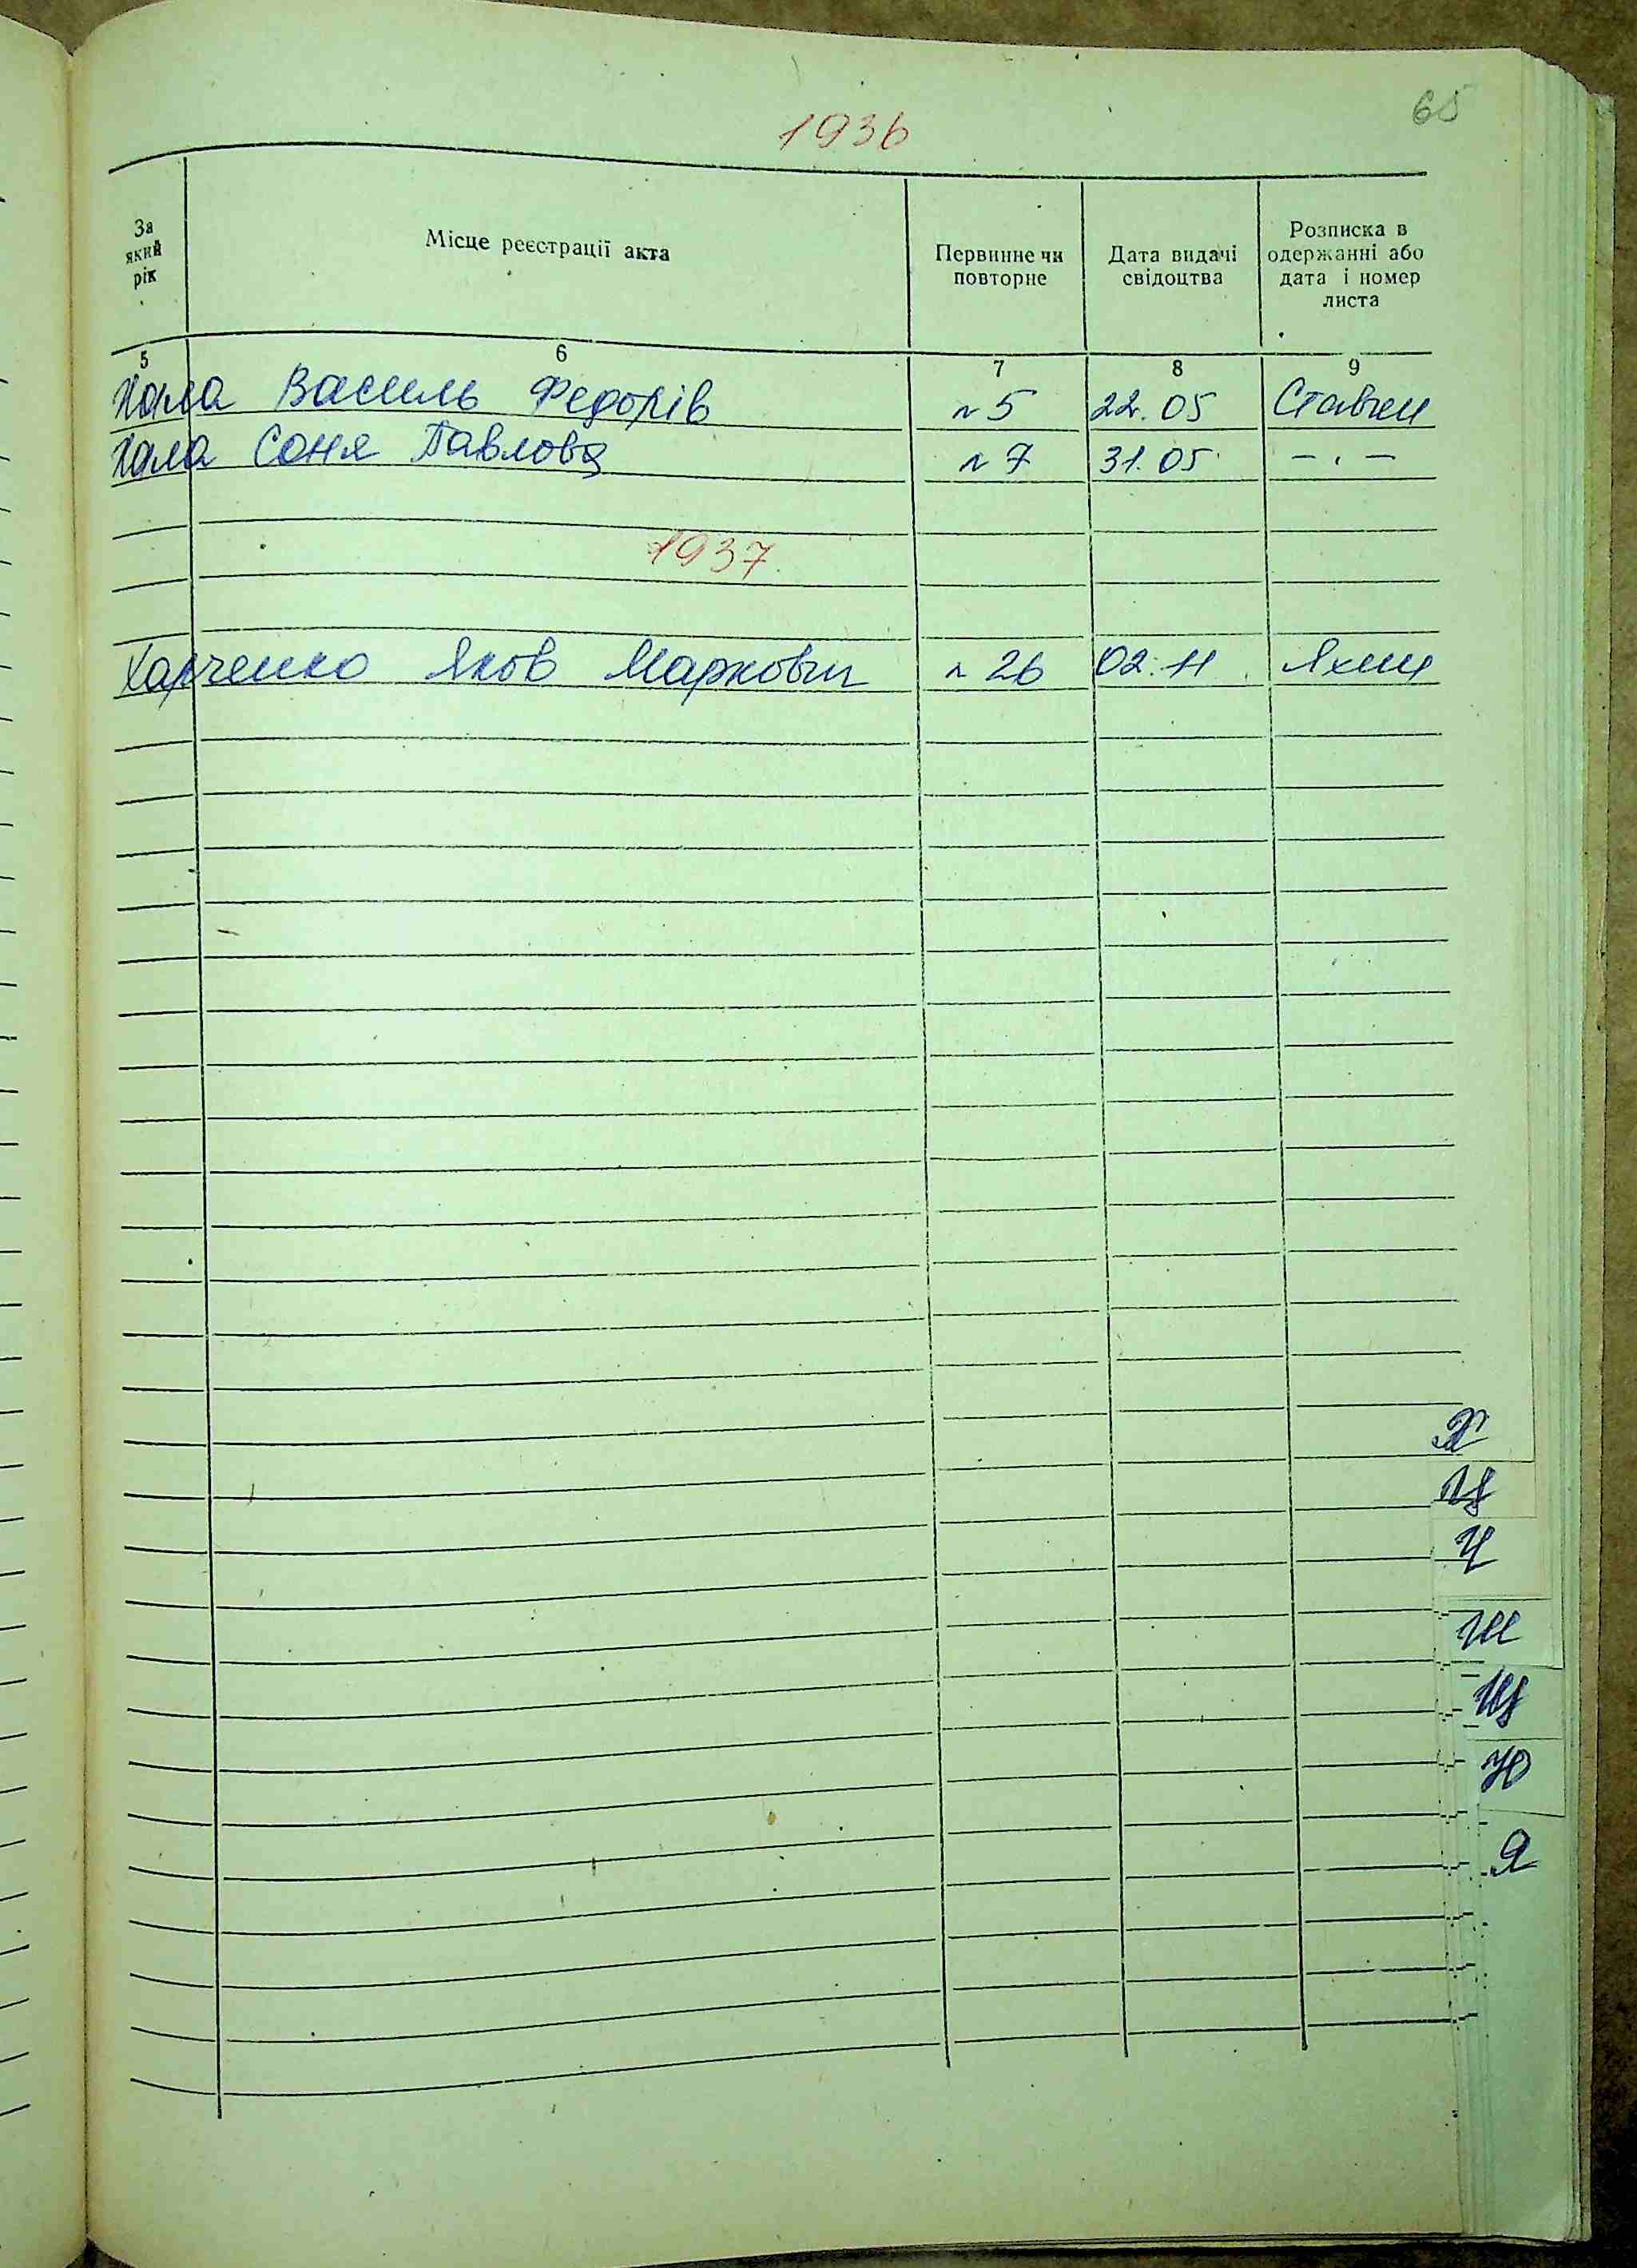 65
1936
За який рік
Місце реєстрації акта
Первинне чи повторне
Дата видачі свідоцтва
Розписка в одержанні або дата і номер листа
5 6 7 8 9
Хала Василь Федорів № 5 22.05 Ставки
Хала Соня Павлова № 7 31.05 – . –
1937
Харченко Яков Маркович № 26 02.11
Х
Ц
Ч
Ш
Щ
Ю
Я